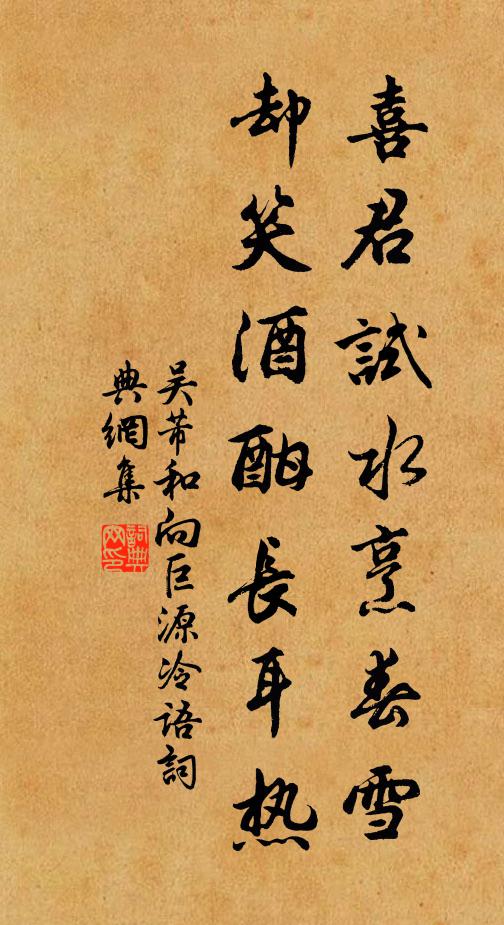 喜君試水烹春雪
却笑酒酣長耳热
吴芾和向巨源冷語詞
典網集
詞典网印